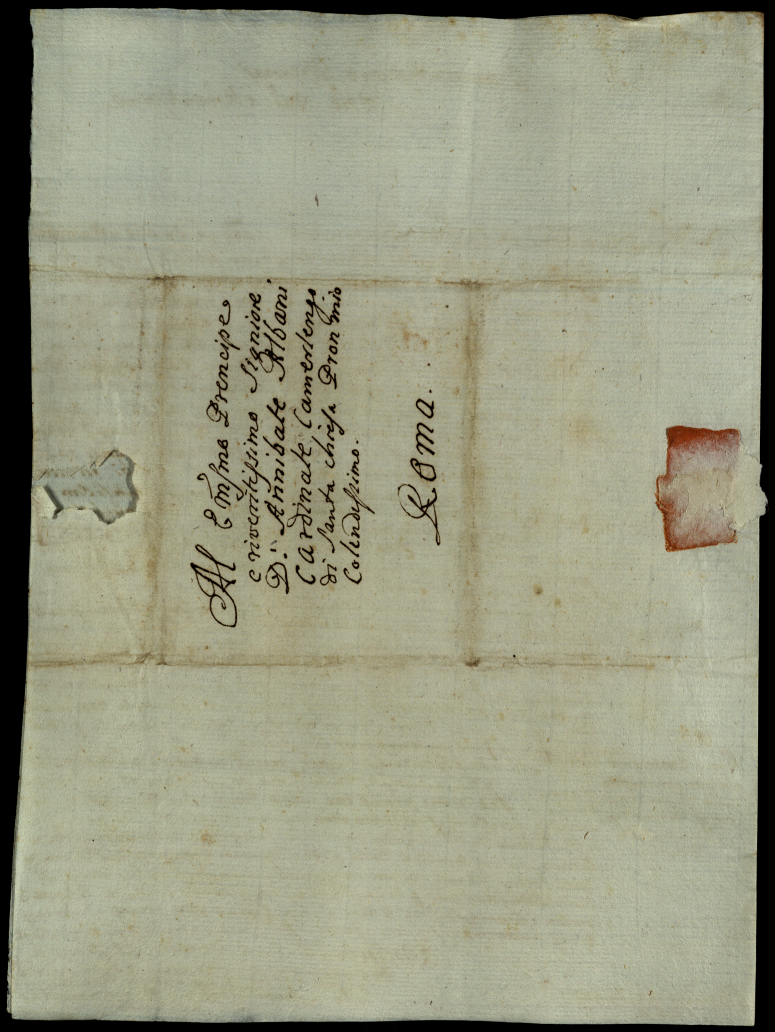 Al Em̃mo Prencipe
e riveritissimo Signiore
D: Annibale Albani
Cardinale Camerlengo
di Santa chiesa Pron mio
Colendissimo.
Roma.